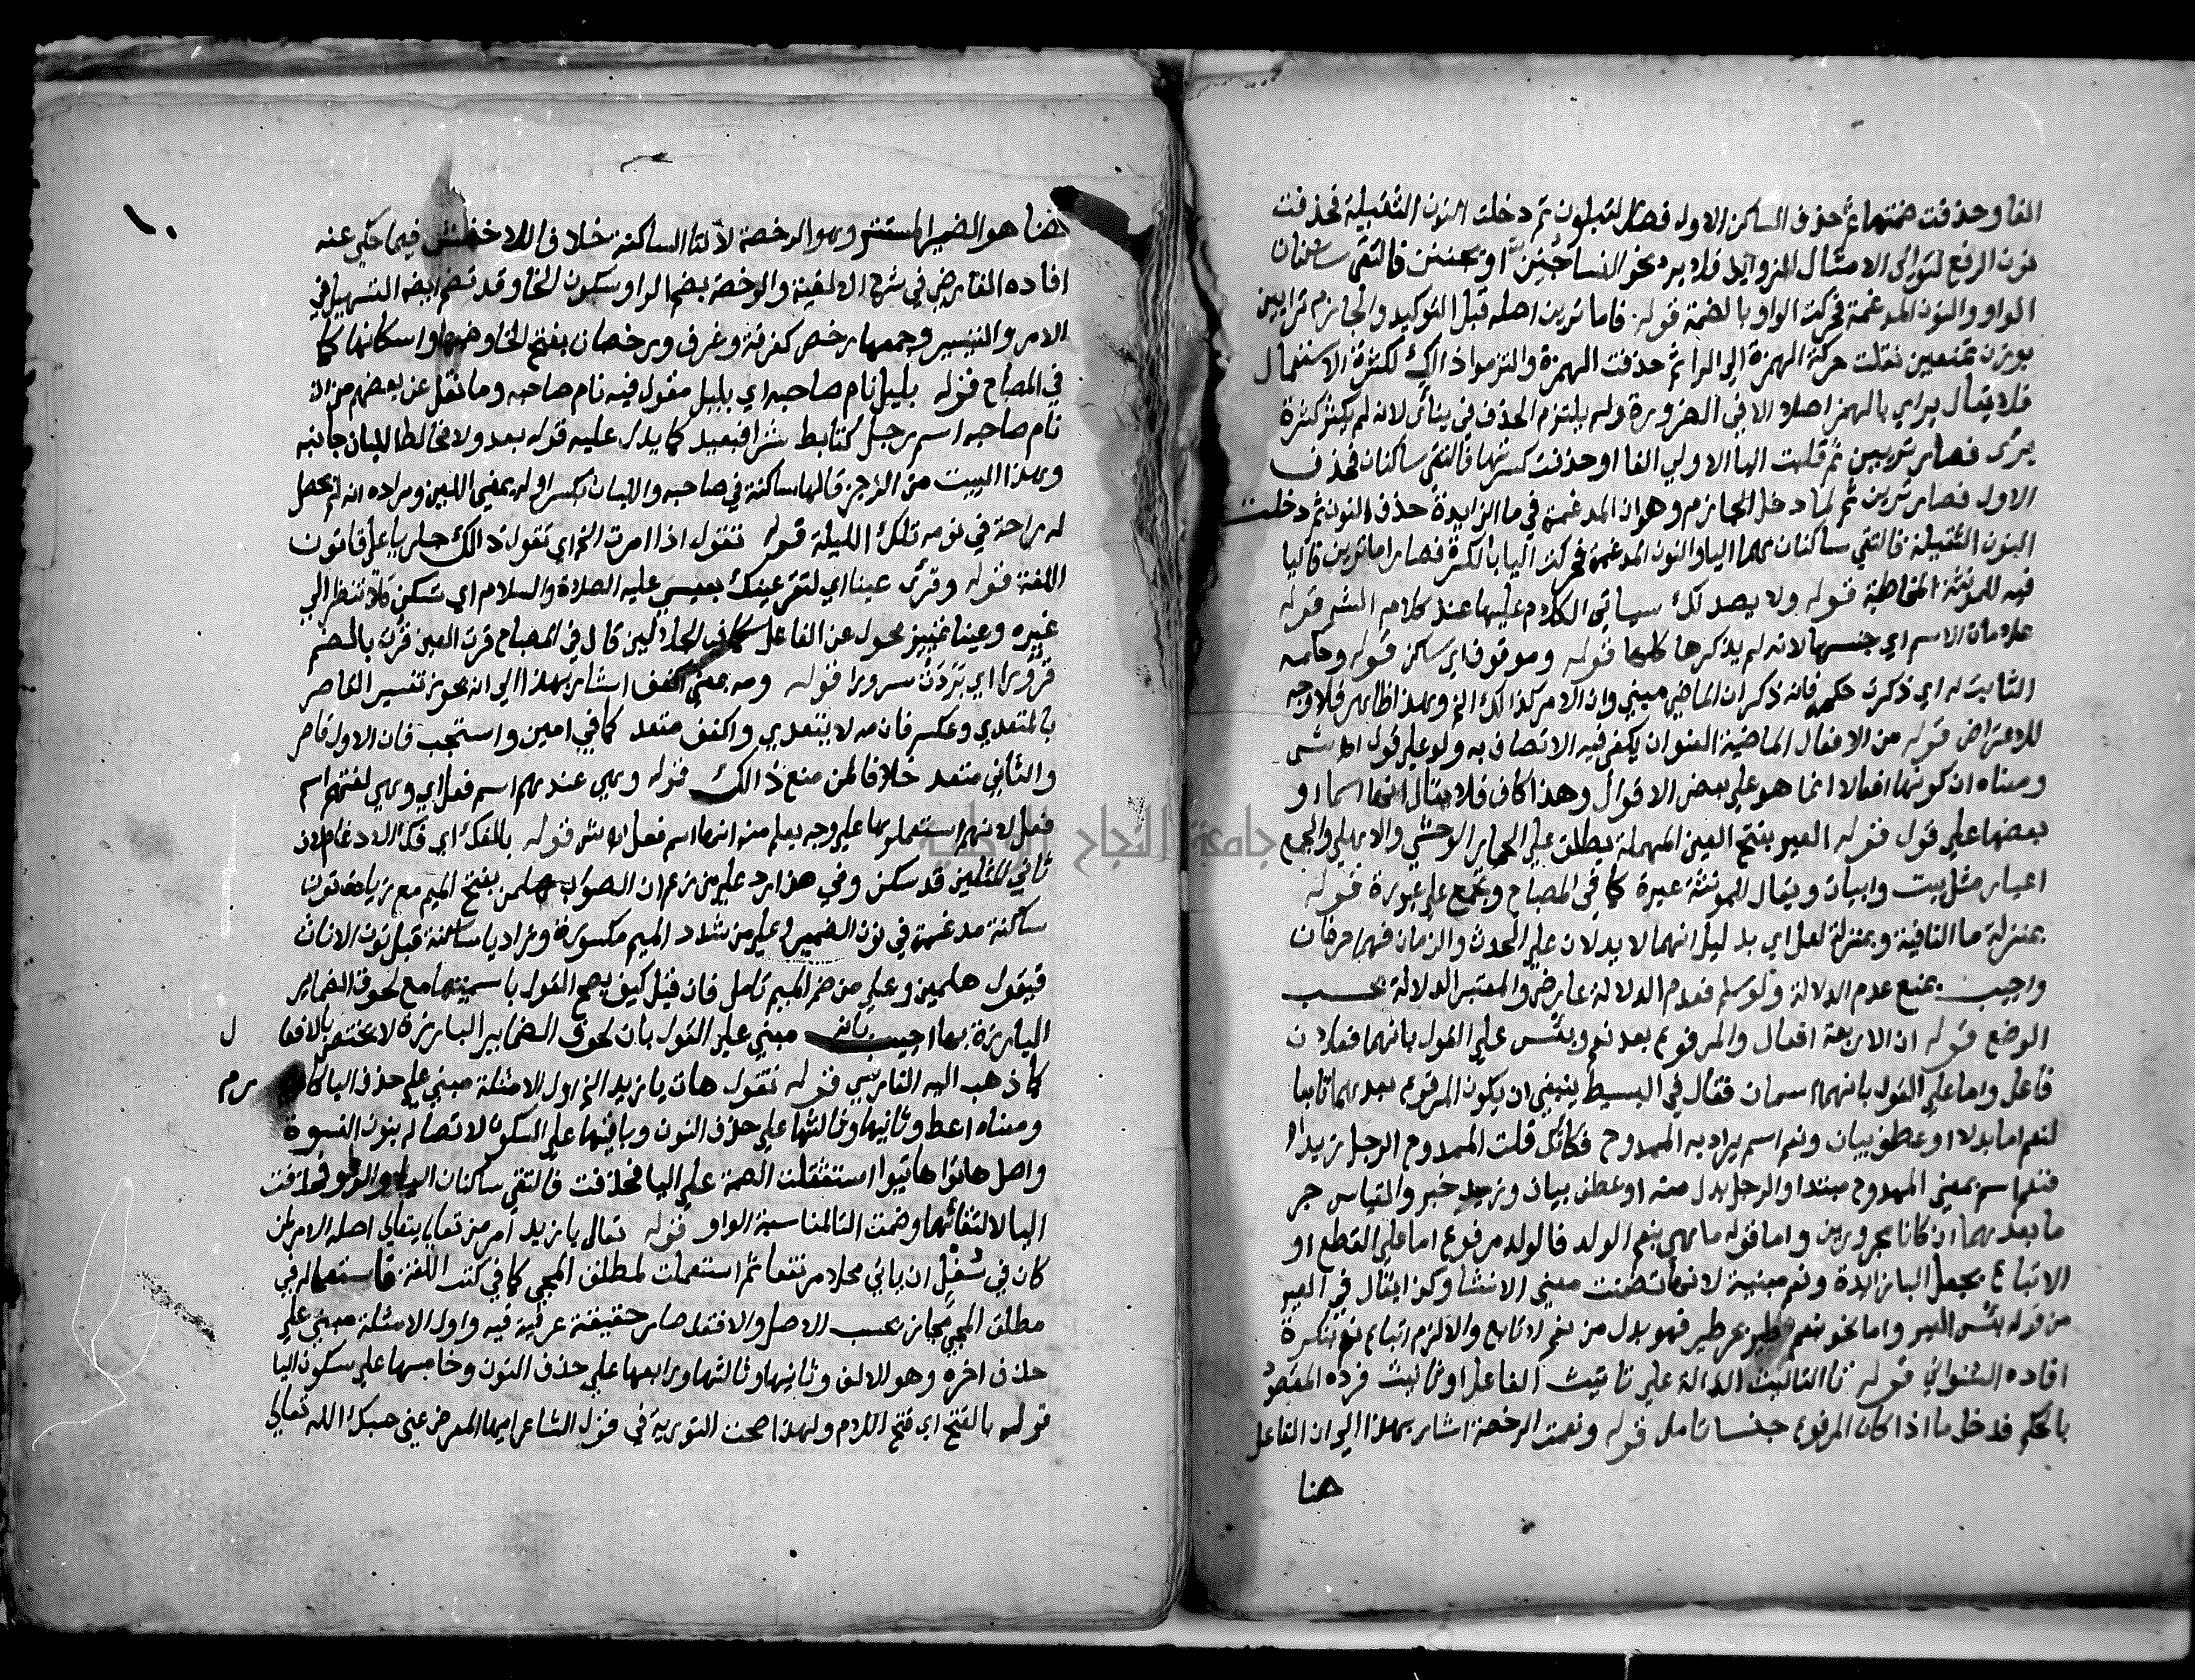 الفا وحذفت ضمتها ثم حذف الساكن الاول فصار لتبلون ثم دخلت النون الثقيلة فحذفت
نون الرفع لتوالي الامثال الزوايد فلا يرد نحو النسا جُنِنّ او يجننن فالتقي ساكنان
الواو والنون المدغمة فحركت الواو بالضمة قوله فاما ترين اصله قبل التوكيد والجازم ترايين
بوزن تمنعين نقلت حركة الهمزة الي الرا ثم حذفت الهمزة والتزموا ذالك لكثرة الاستعمال
فلا يقال يراي بالهمز اصلا الا في الضرورة ولم يلتزم الحذف في يناي لانه لم يكثر كثرة
يري فصار تريين ثم قلبت اليا الاولي الفا او حذفت كسرتها فالتقي ساكنان فحذف
الاول فصار ترين ثم لما دخل الجازم وهو ان المدغمة في ما الزايدة حذف النون ثم دخلت
النون الثقيلة فالتقي ساكنان هما اليا والنون المدغمة فحركت اليا بالكسرة فصار اما ترين فاليا
فيه للمونثة المخاطبة قوله ولا يصدنك سياتي الكلام عليها عند كلام الشم قوله
علامات الاسم اي جنسها لانه لم يذكرها كلها قوله وموقوف اي ساكن قوله وحكمه
الثابت له اي ذكرت حكمه فانه ذكر ان الماضي مبني وان الامر كذالك الخ وهذا ظاهر فلا وجه
للاعتراض قوله من الافعال الماضية العنوان يكفي فيه الاتصاف به ولو علي قول
ومعناه ان كونها افعالا انما هو علي بعض الاقوال وهذا كاف فلا يقال انها اسما او
بعضها علي قول قوله العير بفتح العين المهملة يطلق علي الحمار الوحشي والاهلي والجمع
اعيار مثل بيت وابيات ويقال للمونثة عيرة كما في المصباح ويجمع علي عيورة قوله
بمنزلة ما النافية وبمنزلة لعل اي بدليل انهما لا يدلان علي الحدث والزمان فهما حرفان
واجيب بمنع عدم الدلالة ولو سلم فعدم الدلالة عارض والمعتبر الدلالة بحسب
الوضع قوله ان الاربعة افعال والمرفوع بعد نعم وبئس علي القول بانهما فعلان
فاعل واما علي القول بانهما اسمان فقال في البسيط ينبغي ان يكون المرفوع بعدهما تابعا
لنعم اما بدلا او عطف بيان ونعم اسم يراد به الممدوح فكانك قلت الممدوح الرجل زيد
فنعم اسم بمعني الممدوح مبتدا والرجل بدل منه او عطف بيان وزيد خبر والقياس جر
ما بعدهما ان كانا مجرورين واما قوله ما هي بنعم الولد فالولد مرفوع اما علي القطع او
الاتباع بجعل البا زايدة ونعم مبنية لانها تضمنت معني الانشا وكذا يقال في العير
من قوله بئس العير واما نحو بنعم طير بجر طير فهو بدل من نعم لا تابع والا لزم اتباع نعم بنكرة
افاده الشنواني قوله تا التانيث الدالة علي تانيث الفاعل او تانيث فرده المقصود
بالحكم فدخل ما اذا كان المرفوع جنسا تامل قوله ونعمت الرخصة اشار بهذا الي ان الفاعل
هنا
هنا هو الضمير المستتر وهو الرخصة لا التا الساكنة خلافا للاخفش فيما حكي عنه
افاده الفارضي في شرح الالفية والرخصة بضم الرا وسكون الخا وقد تضم ايضا التسهيل في
الامر والتيسير وجمعها رخص كغرفة وغرف ورخصات بفتح الخا وضمها واسكانها كما
في المصباح قوله بليل نام صاحبه اي بليل مقول فيه نام صاحبه وما نقل عن بعضهم من ان
نام صاحبه اسم رجل كتابط شرا فبعيد كما يدل عليه قوله بعد ولا مخالط الليان جانبه
وهذا البيت من الرجز فالها ساكنة في صاحبه والليان بكسر اوله بمعني اللين ومراده انه لم يحصل
له راحة في نومه تلك الليلة قوله فتقول اذا امرت الخ اي تقول ذالك جاريا علي قانون
اللغة قوله وقري عينا اي لتقر عينك بعيسي عليه الصلاة والسلام اي تسكن فلا تنظر الي
غيره وعينا تمييز محول عن الفاعل كما في الجلالين قال في المصباح قرت العين قرت بالضم
قرورا اي بردت سرورا قوله ومه بمعني اكفف اشار بهذا الي انه يجوز تفسير القاصر
بالمتعدي وعكسه فان مه لا يتعدي واكفف متعد كما في امين واستجب فان الاول قاصر
والثاني متعد خلافا لمن منع ذالك قوله وهي عندهم اسم فعل اي وهي لغتهم اسم
فعل لانهم استعملوها علي وجه يعلم منه انها اسم فعل قوله بالفك اي فك الادغام لان
ثاني المثلين قد سكن وفي هذا رد علي من زعم ان الصواب هلمن بفتح الميم مع زيادة نون
ساكنة مدغمة في نون الضمير وعلي من شدد الميم مكسورة وزاد يا ساكنة قبل نون الاناث
فيقول هلمين وعلي من ضم الميم تامل فان قيل كيف يصح القول باسميتها مع لحوق الضماير
البارزة بها اجيب بانه مبني علي القول بان لحوق الضماير البارزة لا يختص بالافعا ل
كما ذهب اليه الفارسي قوله نقول هات يا زيد الخ اول الامثلة مبني علي حذف اليا كارم
ومعناه اعط وثانيها وثالثها علي حذف النون وباقيها علي السكون لاتصاله بنون النسوة
واصل هاتوا هاتيوا استثقلت الضمة علي اليا فحذفت فالتقي ساكنان اليا والواو فحذفت
اليا لالتقائهما وضمت التا لمناسبة الواو قوله تعال يا زيد امر من تعالي يتعالي اصله الامر لمن
كان في سُفْلٍ ان ياتي محلا مرتفعا ثم استعملت لمطلق المجي كما في كتب اللغة فاستعماله في
مطلق المجي مجاز بحسب الاصل والا فقد صار حقيقة عرفية فيه واول الامثلة مبني علي
حذف اخره وهو الالف وثانيها وثالثها ورابعها علي حذف النون وخامسها علي سكون اليا
قوله بالفتح اي فتح اللام ولهذا صحت التورية في قول الشاعر ايها المعرض عني حسبك الله تعالي
جامعة النجاح الوطنية